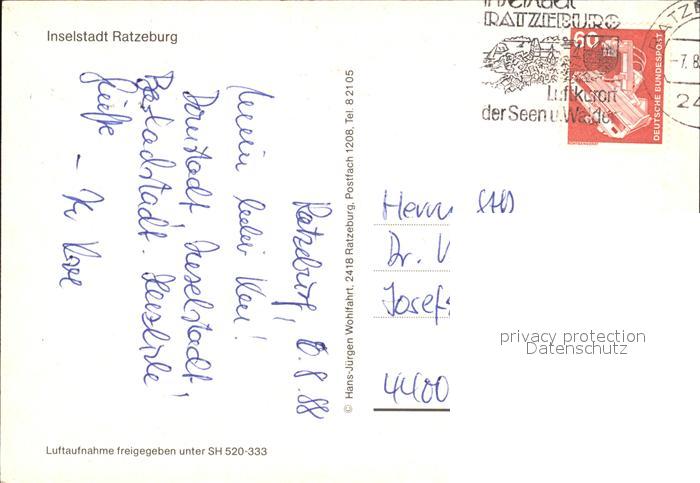 Inselstadt Ratzeburg
Inselstadt
RATZEBURG
Luftkurort
der Seen u. Wälder
60
DEUTSCHE BUNDESPOST
-7.8
24
Ratzeburg, 6.8.88
Mein lieber
Domstadt Inselstadt
Herzliche
Grüße –
© Hans-Jürgen Wohlfahrt, 2418 Ratzeburg, Postfach 1208, Tel. 8 21 05
Herrn
Dr. V
Josef
4400
privacy protection
Datenschutz
Luftaufnahme freigegeben unter SH 520-333